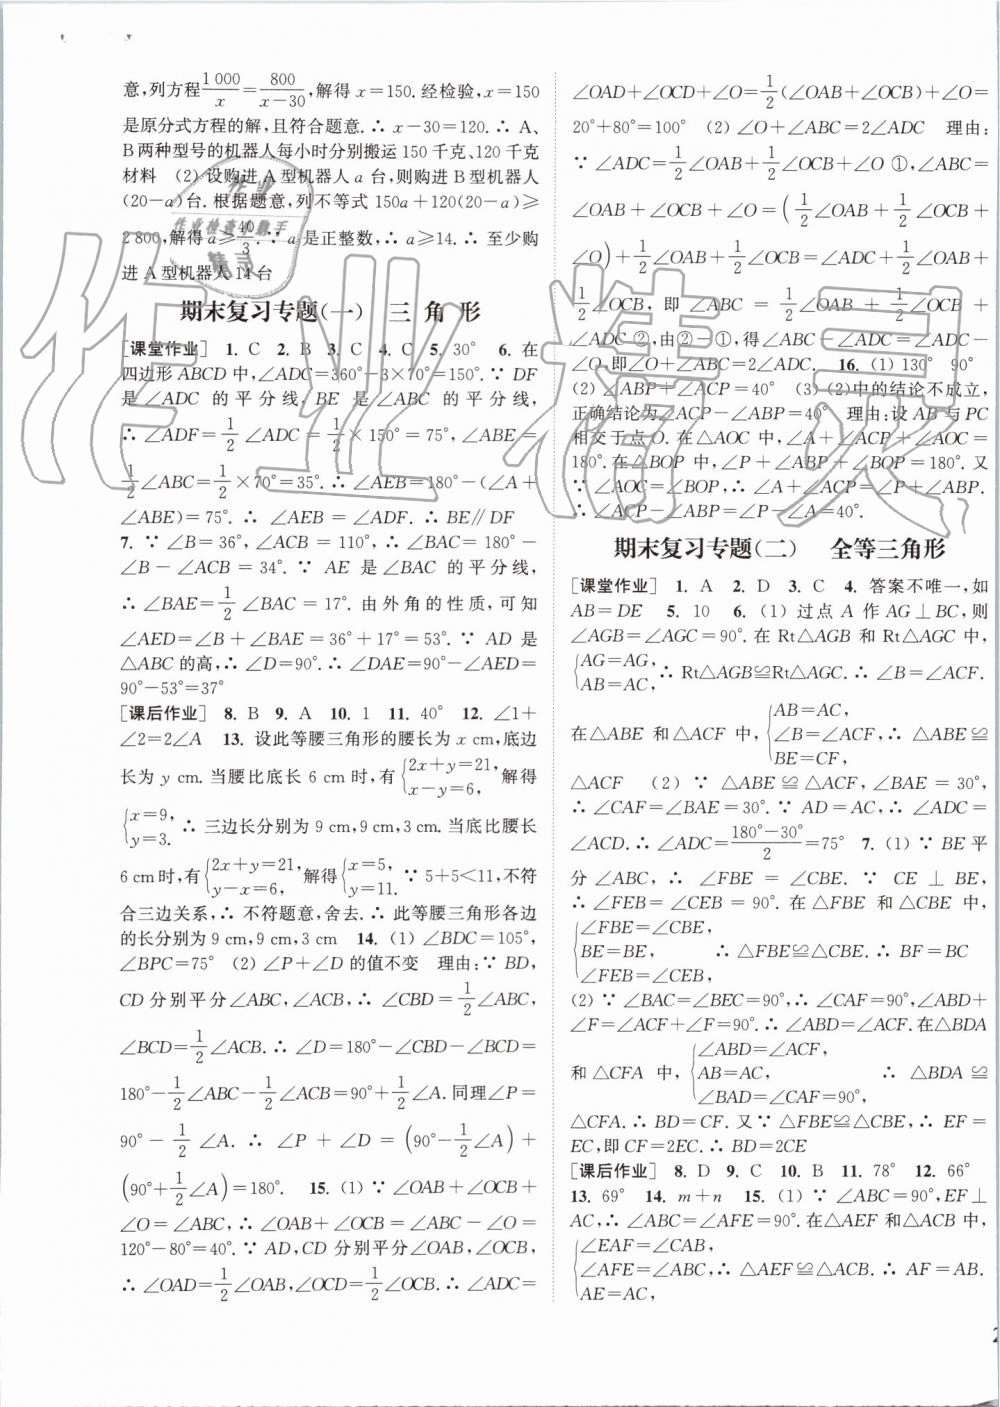 意,列方程1000/x=800/(x-30),解得 x=150. 经检验,x=150
是原分式方程的解,且符合题意.∴ x-30=120.∴ A、
B两种型号的机器人每小时分别搬运 150 千克、120 千克
材料 (2) 设购进 A 型机器人 a 台,则购进 B 型机器人
(20-a)台. 根据题意,列不等式 150a+120(20-a)≥
2 800,解得 a≥40/3.∵ a 是正整数,∴ a≥14.∴ 至少购
进 A 型机器人 14 台
期末复习专题(一) 三 角 形
[课堂作业] 1. C 2. B 3. C 4. C 5. 30° 6. 在
四边形 ABCD 中,∠ADC=360°-3×70°=150°.∵ DF
是∠ADC 的平分线,BE 是∠ABC 的平分线,
∴ ∠ADF=1/2∠ADC=1/2×150°=75°,∠ABE=
1/2∠ABC=1/2×70°=35°.∴ ∠AEB=180°-(∠A+
∠ABE)=75°.∴ ∠AEB=∠ADF.∴ BE∥DF
7. ∵ ∠B=36°,∠ACB=110°,∴ ∠BAC=180°-
∠B-∠ACB=34°.∵ AE 是∠BAC 的平分线,
∴ ∠BAE=1/2∠BAC=17°. 由外角的性质,可知
∠AED=∠B+∠BAE=36°+17°=53°.∵ AD 是
△ABC 的高,∴ ∠D=90°.∴ ∠DAE=90°-∠AED=
90°-53°=37°
[课后作业] 8. B 9. A 10. 1 11. 40° 12. ∠1+
∠2=2∠A 13. 设此等腰三角形的腰长为 x cm,底边
长为 y cm. 当腰比底长 6 cm 时,有{2x+y=21, x-y=6, 解得
{x=9, y=3. ∴ 三边长分别为 9 cm,9 cm,3 cm. 当底比腰长
6 cm 时,有{2x+y=21, y-x=6, 解得{x=5, y=11. ∵ 5+5<11,不符
合三边关系,∴ 不符题意,舍去.∴ 此等腰三角形各边
的长分别为 9 cm,9 cm,3 cm 14. (1) ∠BDC=105°,
∠BPC=75° (2) ∠P+∠D 的值不变 理由:∵ BD,
CD 分别平分∠ABC,∠ACB,∴ ∠CBD=1/2∠ABC,
∠BCD=1/2∠ACB.∴ ∠D=180°-∠CBD-∠BCD=
180°-1/2∠ABC-1/2∠ACB=90°+1/2∠A. 同理∠P=
90°-1/2∠A.∴ ∠P+∠D=(90°-1/2∠A)+
(90°+1/2∠A)=180°. 15. (1) ∵ ∠OAB+∠OCB+
∠O=∠ABC,∴ ∠OAB+∠OCB=∠ABC-∠O=
120°-80°=40°.∵ AD,CD 分别平分∠OAB,∠OCB,
∴ ∠OAD=1/2∠OAB,∠OCD=1/2∠OCB.∴ ∠ADC=
∠OAD+∠OCD+∠O=1/2(∠OAB+∠OCB)+∠O=
20°+80°=100° (2) ∠O+∠ABC=2∠ADC 理由:
∵ ∠ADC=1/2∠OAB+1/2∠OCB+∠O ①,∠ABC=
∠OAB+∠OCB+∠O=(1/2∠OAB+1/2∠OCB+
∠O)+1/2∠OAB+1/2∠OCB=∠ADC+1/2∠OAB+
1/2∠OCB,即∠ABC=1/2∠OAB+1/2∠OCB+
∠ADC ②,由②-①,得∠ABC-∠ADC=∠ADC-
∠O,即∠O+∠ABC=2∠ADC. 16. (1) 130° 90°
(2) ∠ABP+∠ACP=40° (3) (2)中的结论不成立,
正确结论为∠ACP-∠ABP=40° 理由:设 AB 与 PC
相交于点 O. 在△AOC 中,∠A+∠ACP+∠AOC=
180°. 在△BOP 中,∠P+∠ABP+∠BOP=180°. 又
∵ ∠AOC=∠BOP,∴ ∠A+∠ACP=∠P+∠ABP.
∴ ∠ACP-∠ABP=∠P-∠A=40°.
期末复习专题(二) 全等三角形
[课堂作业] 1. A 2. D 3. C 4. 答案不唯一,如
AB=DE 5. 10 6. (1) 过点 A 作 AG⊥BC,则
∠AGB=∠AGC=90°. 在 Rt△AGB 和 Rt△AGC 中,
{AG=AG, AB=AC, ∴ Rt△AGB≌Rt△AGC.∴ ∠B=∠ACF.
在△ABE 和△ACF 中,{AB=AC, ∠B=∠ACF, BE=CF, ∴ △ABE≌
△ACF (2) ∵ △ABE≌△ACF,∠BAE=30°,
∴ ∠CAF=∠BAE=30°.∵ AD=AC,∴ ∠ADC=
∠ACD.∴ ∠ADC=(180°-30°)/2=75° 7. (1) ∵ BE 平
分∠ABC,∴ ∠FBE=∠CBE.∵ CE⊥BE,
∴ ∠FEB=∠CEB=90°. 在△FBE 和△CBE 中,
{∠FBE=∠CBE, BE=BE, ∠FEB=∠CEB, ∴ △FBE≌△CBE.∴ BF=BC
(2) ∵ ∠BAC=∠BEC=90°,∴ ∠CAF=90°,∠ABD+
∠F=∠ACF+∠F=90°.∴ ∠ABD=∠ACF. 在△BDA
和△CFA 中,{∠ABD=∠ACF, AB=AC, ∠BAD=∠CAF=90°, ∴ △BDA≌
△CFA.∴ BD=CF. 又∵ △FBE≌△CBE,∴ EF=
EC,即 CF=2EC.∴ BD=2CE
[课后作业] 8. D 9. C 10. B 11. 78° 12. 66°
13. 69° 14. m+n 15. (1) ∵ ∠ABC=90°,EF⊥
AC,∴ ∠ABC=∠AFE=90°. 在△AEF 和△ACB 中,
{∠EAF=∠CAB, ∠AFE=∠ABC, AE=AC, ∴ △AEF≌△ACB.∴ AF=AB.
作业
作业检查小助手
精灵
作业精灵